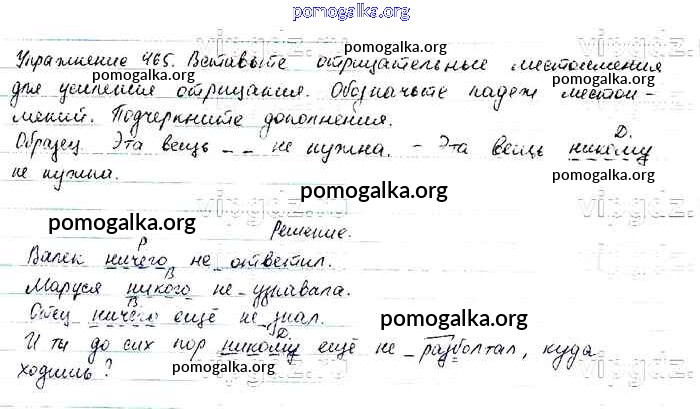 pomogalka.org
Упражнение 465. Вставьте отрицательные местоимения
для усиления отрицания. Обозначьте падеж местои-
мений. Подчеркните дополнения.
Д.
Образец. Эта вещь -- не нужна. - Эта вещь никому
не нужна.
Решение.
Р
Валек ничего не ответил.
В
Маруся никого не узнавала.
В
Отец ничего ещё не знал.
Д.
И ты до сих пор никому ещё не разболтал, куда
ходишь?
pomogalka.org
pomogalka.org
pomogalka.org
pomogalka.org
pomogalka.org
pomogalka.org
pomogalka.org
pomogalka.org